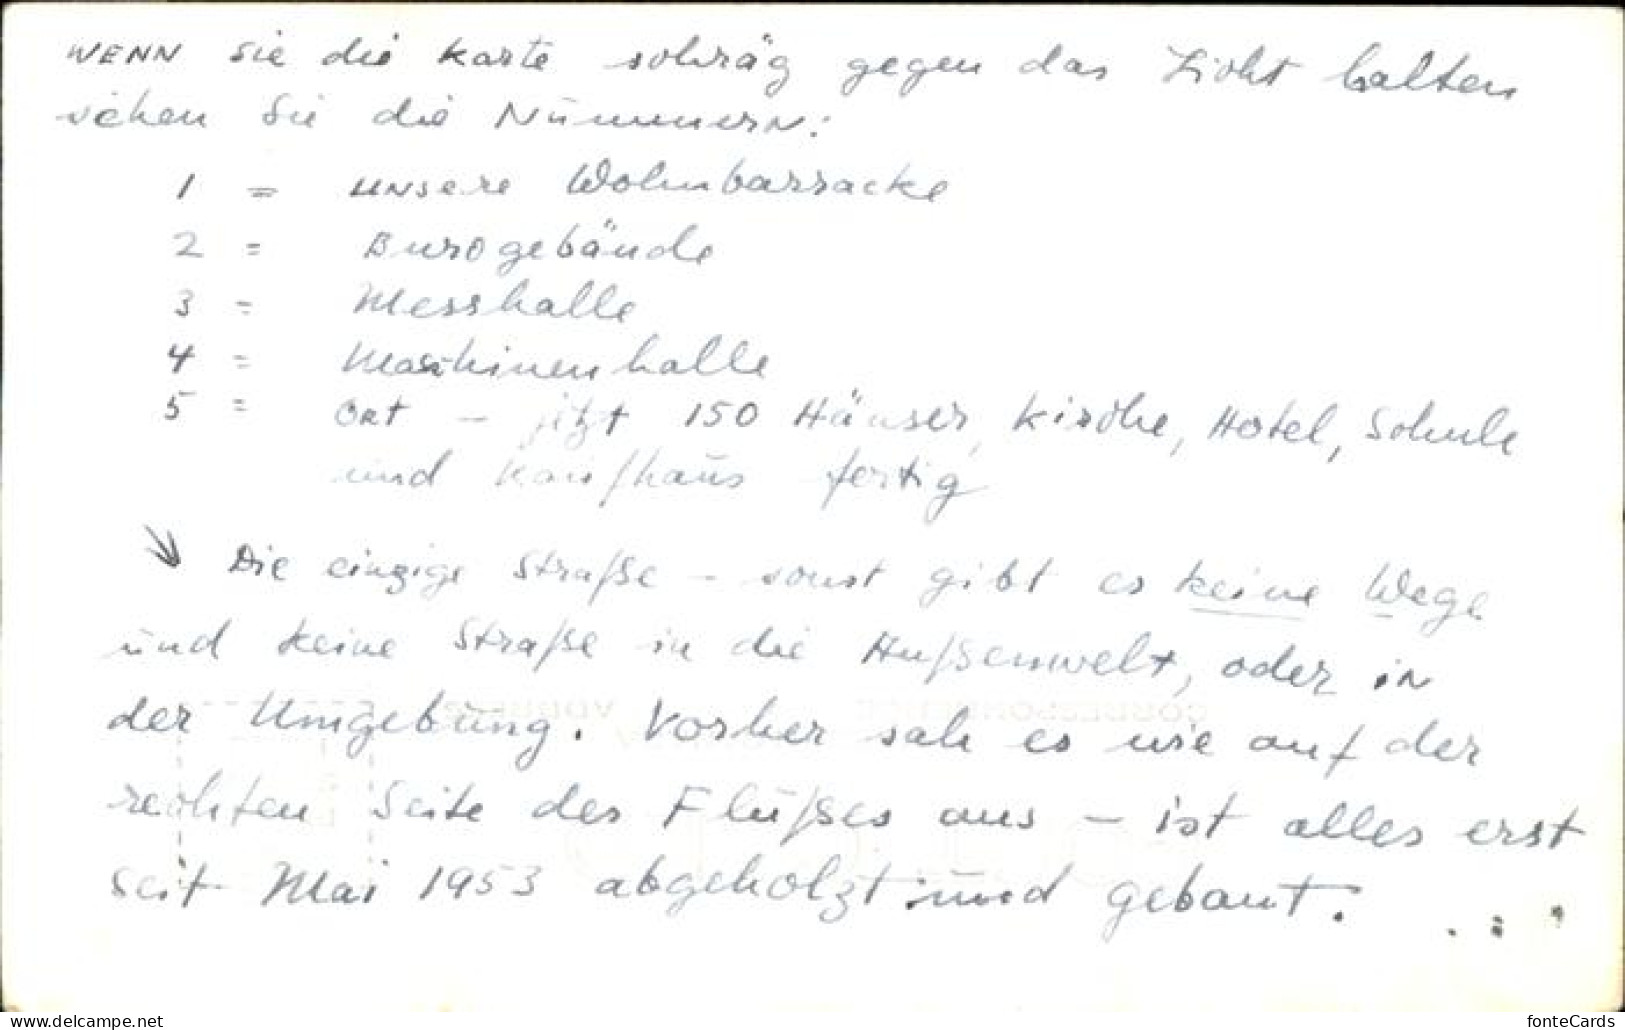 WENN Sie die Karte schräg gegen das Licht halten
sehen Sie die Nummern:
1 = unsere Wohnbarracke
2 = Burogebäude
3 = Messhalle
4 = Maschinenhalle
5 = Ort – jetzt 150 Häuser, Kirche, Hotel, Schule
und Kaufhaus fertig
↘ Die einzige Straße – sonst gibt es keine Wege
und keine Straße in die Außenwelt, oder in
der Umgebung. Vorher sah es wie auf der
rechten Seite des Flußes aus – ist alles erst
seit Mai 1953 abgeholzt und gebaut. ...
www.delcampe.net
fonteCards